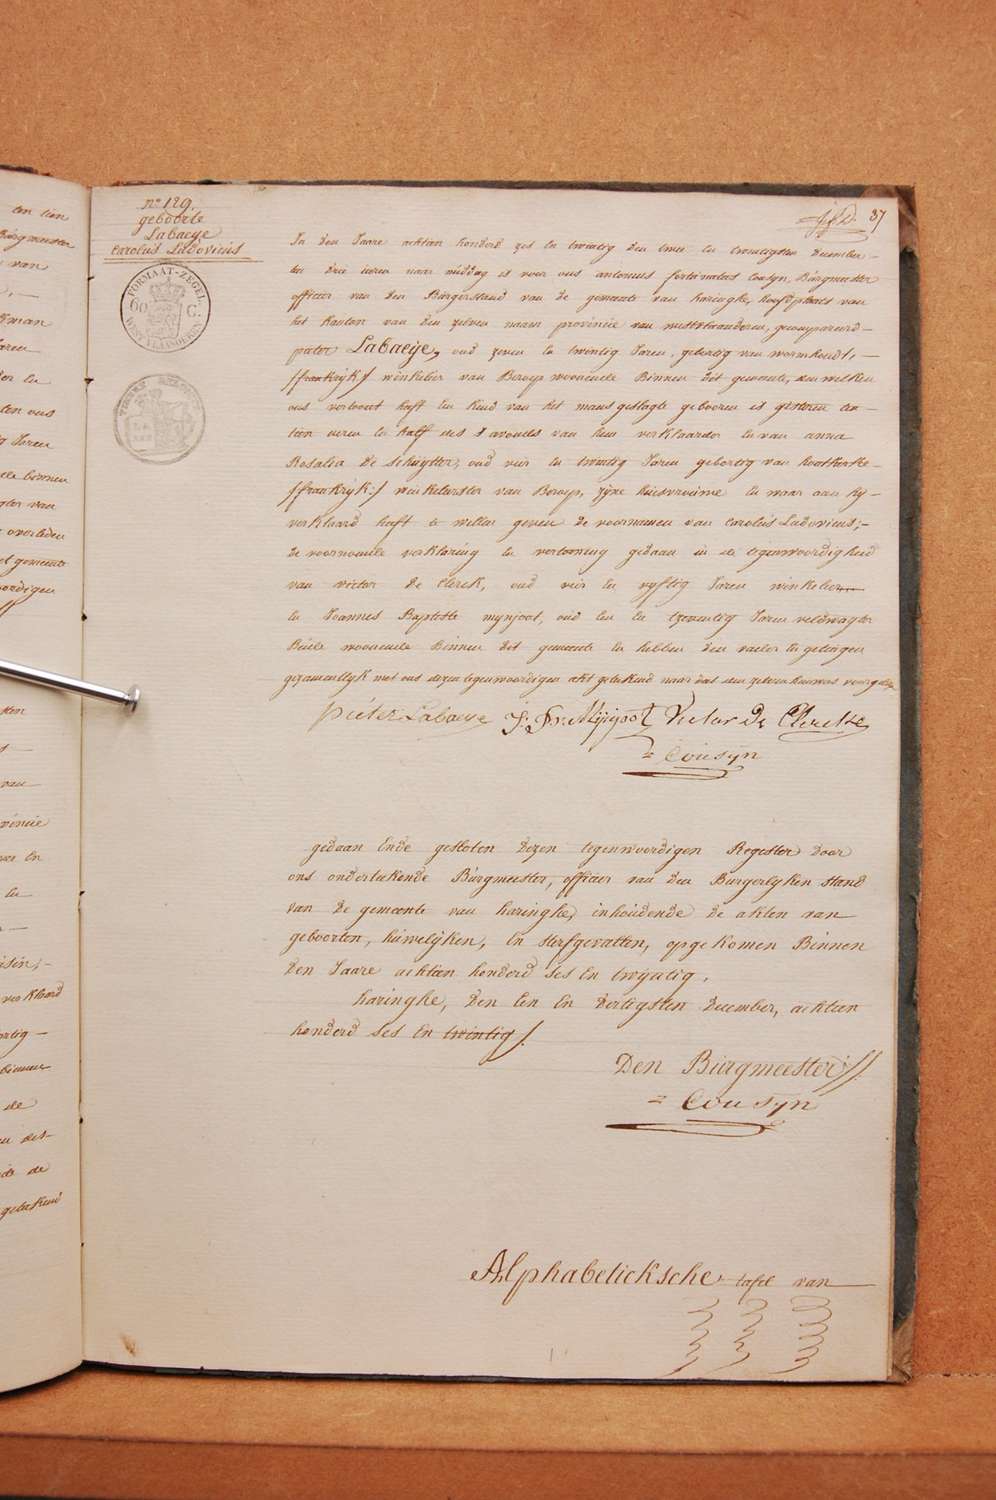 ten tien
Burgmeester
van
kman
Jaren
ten ons
Jaren
binnen
van
overleden
gemeente
van
vincie
en
verklaard
de
de
getekend
37
n° 129.
geboorte
Labaeye
Carolus Ludovicus
FORMAAT-ZEGEL.
60 C.
WEST VLAENDEREN
In den Jaare achten honderd zes en twintig den twee en twintigsten december
ten drie uren naar middag is voor ons antonius fortunatus Cousyn, Burgmeester
officier van den Burgerstand van de gemeente van haringhe, hoofdplaets van
het kanton van den zelven naam provincie van westvlaanderen, gecompareerd
pieter Labaeye, oud zeven en twintig Jaren, gebortig van wormhoudt,
/frankrijk/ winkelier van Beroep woonende Binnen dit gemeente, den welken
ons vertoont heeft een kind van het mansgeslagte geboren is gisteren ten
tien uren en half des s'avonds van hem verklaarder en van anna
Rosalia De Schuytter, oud vier en twintig Jaren gebortig van hootkerke
/frankrijk:/ winkelierster van Beroep, zijne huisvrouwe en waar aan hij
verklaard heeft te willen geven de voornamen van Carolus Ludovicus;
de voornoemde verklaring en vertooning gedaan in de tegenwoordigheid
van victor de Clerck, oud vier en vyftig Jaren winkelier
en Joannes Baptiste mynjoot, oud een en tzeventig Jaren veldwagter
Beide woonende Binnen dit gemeente en hebben den vader en getuigen
gezamentlijk met ons dezen tegenwoordigen akt getekend naar dat den zelven hun was voorgelezen
pieter Labaeye J: Bt. Mijnjoot Victor De Clercke
= Cousijn
gedaan Ende gesloten dezen tegenwoordigen Register door
ons ondertekende Burgmeester, officier van den Burgerlyken stand
van de gemeente van haringhe, inhoudende de akten van
geboorten, huwelijken, En sterfgevallen, opgekomen Binnen
den Jaare achten honderd ses En twyntig,
haringhe, den Een En dertigsten december, achten
honderd ses En twintig/.
Den Burgmeester//.
= Cousijn
Alphabeticksche tafel van